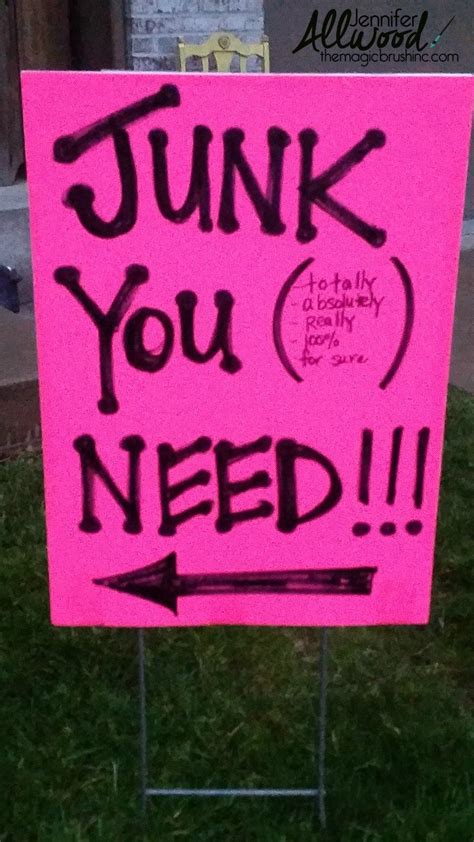 Jennifer
Allwood
themagicbrushinc.com
JUNK
YOU
(- totally
- absolutely
- Really
- 100%
for sure)
NEED!!!